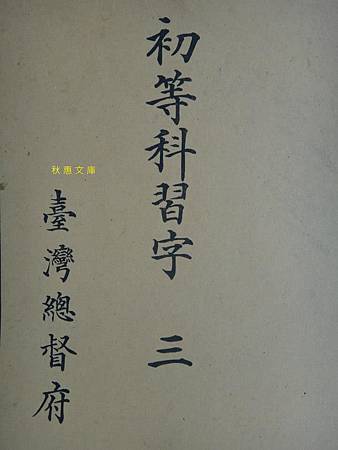 初等科習字 三
臺灣總督府
秋惠文庫